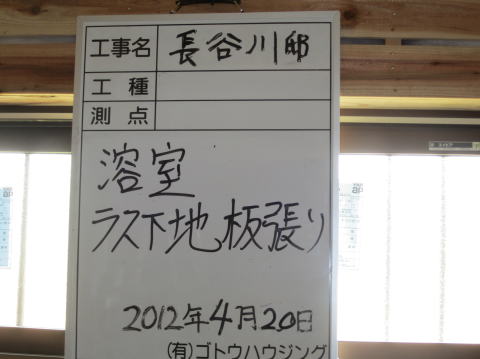 工事名 長谷川邸
工種
測点
溶室
ラス下地板張り
2012年4月20日
(有)ゴトウハウジング